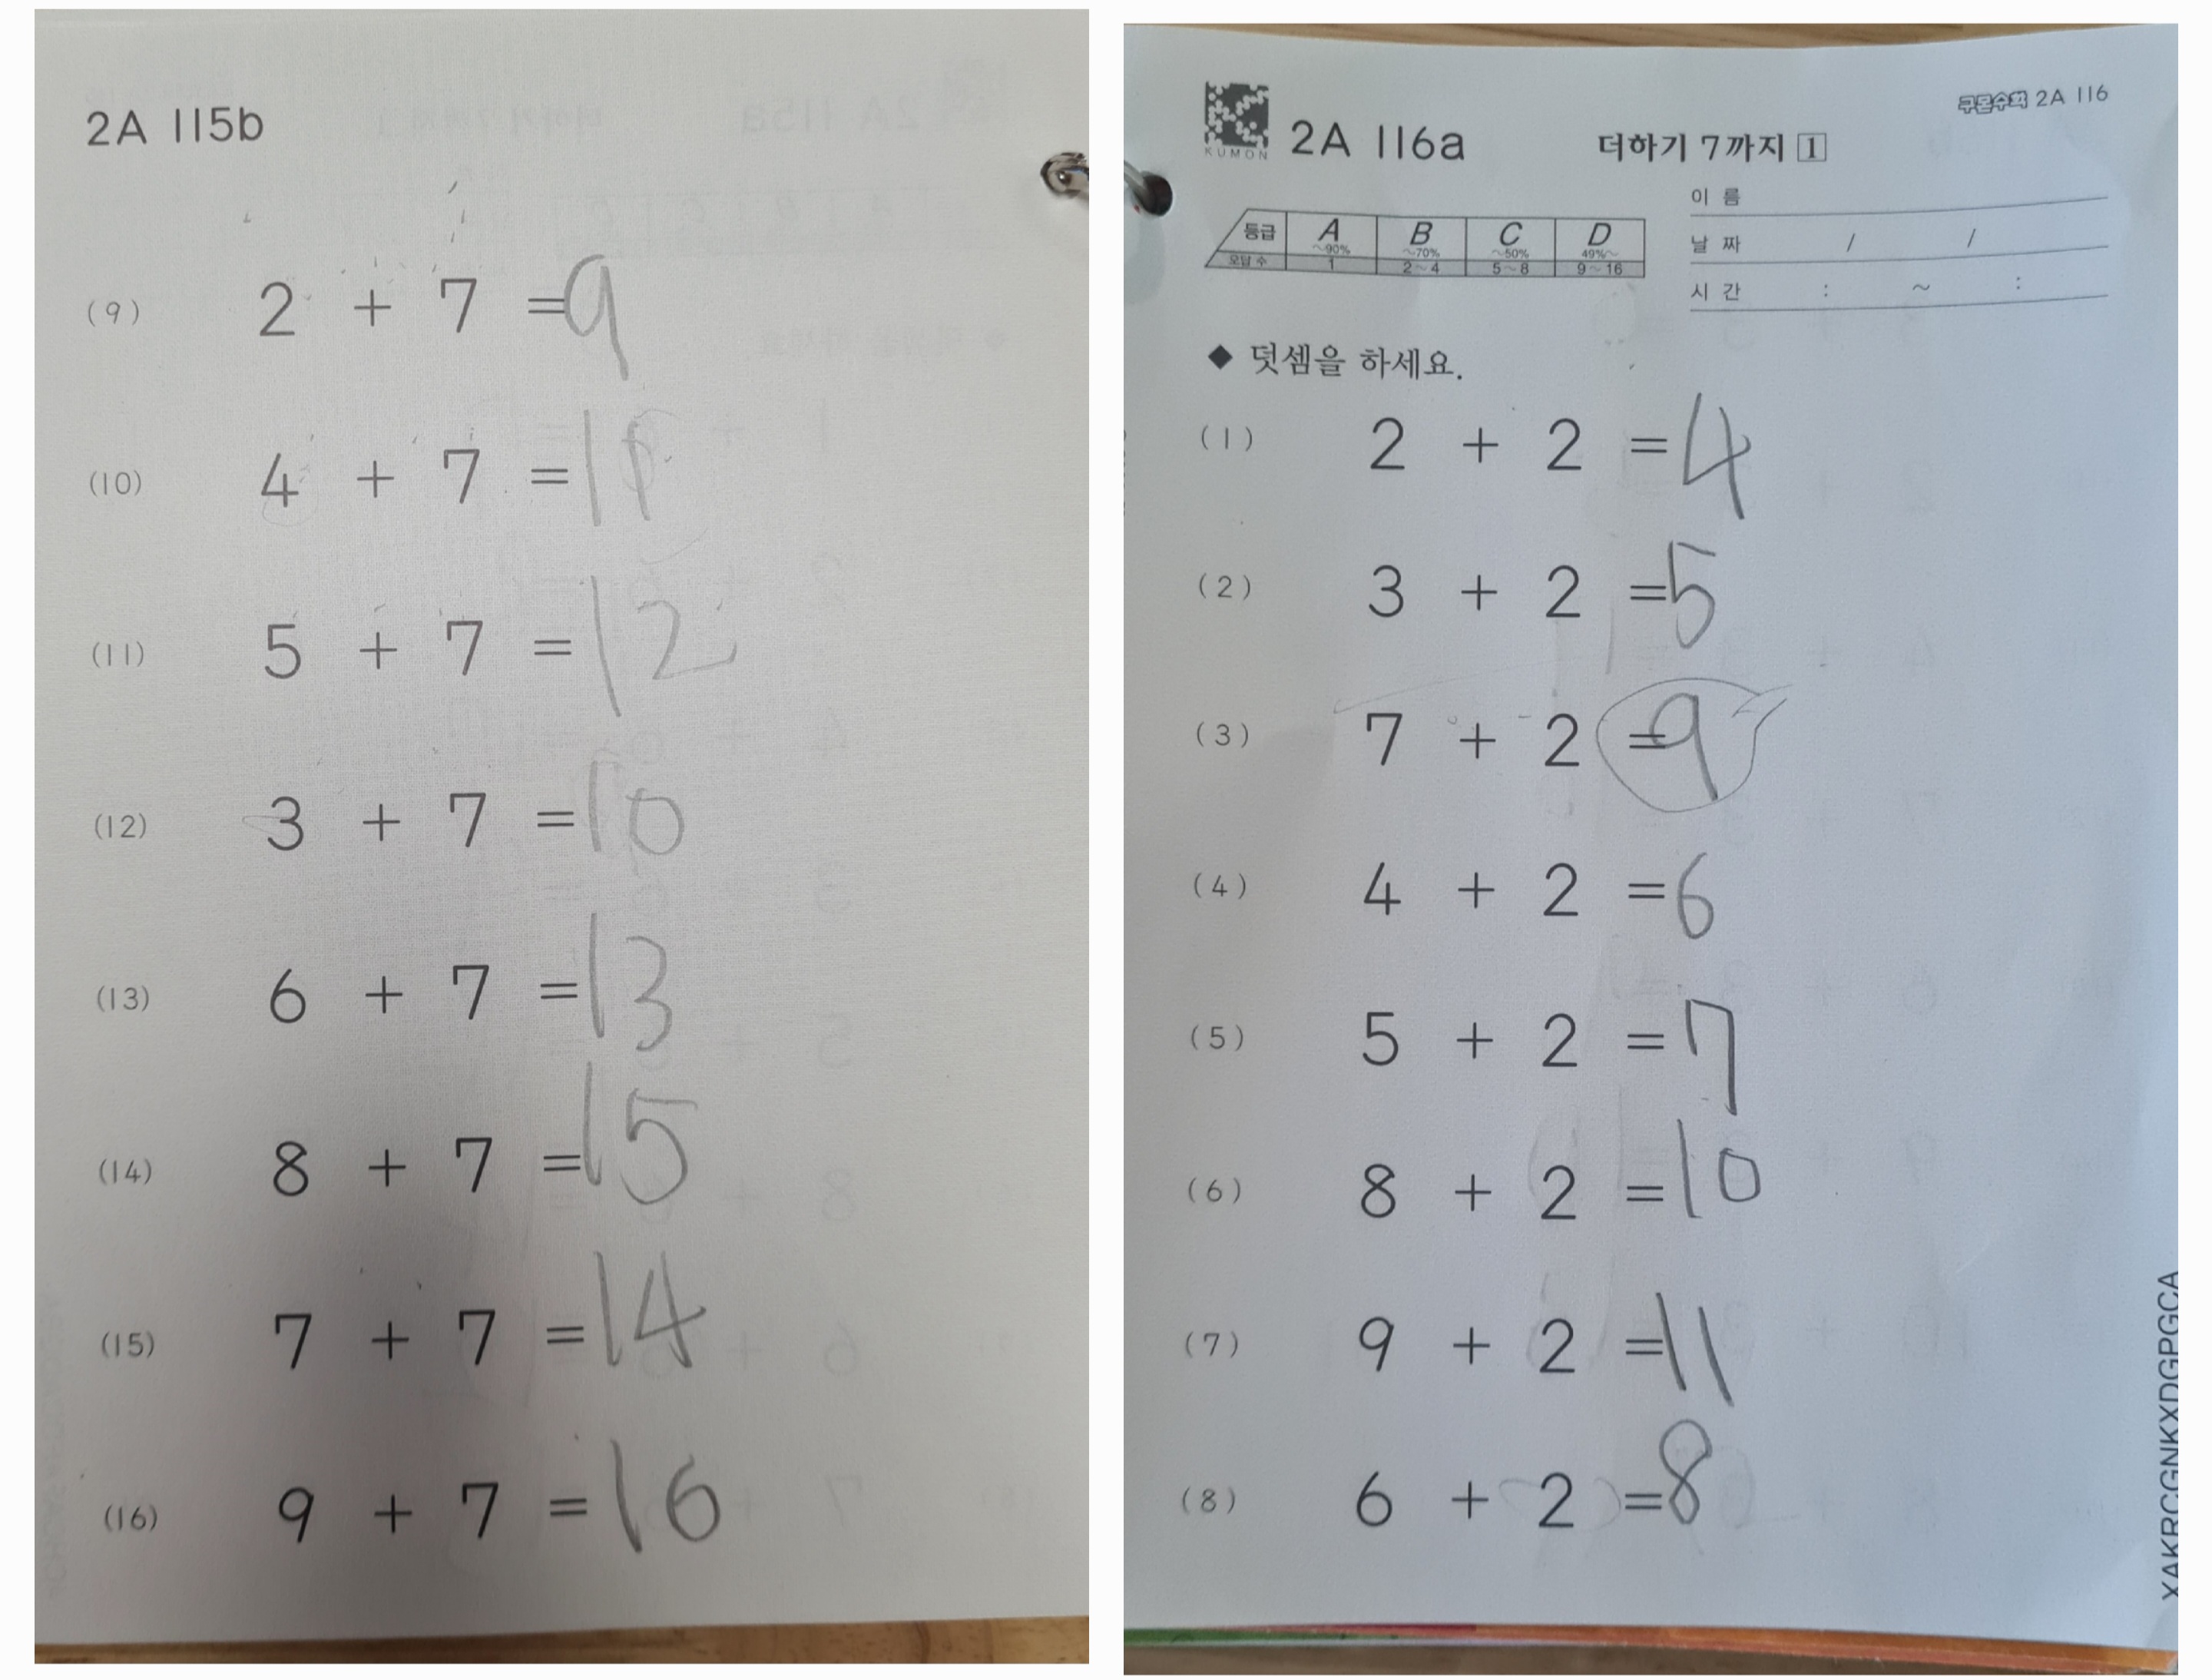 2A 115b
(9) 2 + 7 = 9
(10) 4 + 7 = 11
(11) 5 + 7 = 12
(12) 3 + 7 = 10
(13) 6 + 7 = 13
(14) 8 + 7 = 15
(15) 7 + 7 = 14
(16) 9 + 7 = 16
구몬수학 2A 116
KUMON
2A 116a 더하기 7까지 1
등급 A ~90% B ~70% C ~50% D 49%~
오답 수 1 2~4 5~8 9~16
이 름
날 짜 / /
시 간 : ~ :
◆ 덧셈을 하세요.
(1) 2 + 2 = 4
(2) 3 + 2 = 5
(3) 7 + 2 = 9
(4) 4 + 2 = 6
(5) 5 + 2 = 7
(6) 8 + 2 = 10
(7) 9 + 2 = 11
(8) 6 + 2 = 8
XAKRCGNKXDGPGCA